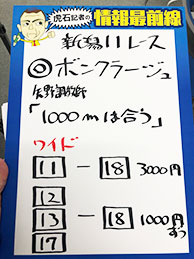 虎石記者の
情報最前線
新潟11レース
◎ボンクラージュ
矢野調教師
「1000mは合う」
ワイド
11 － 18 3000円
12
13 － 18 1000円ずつ
17